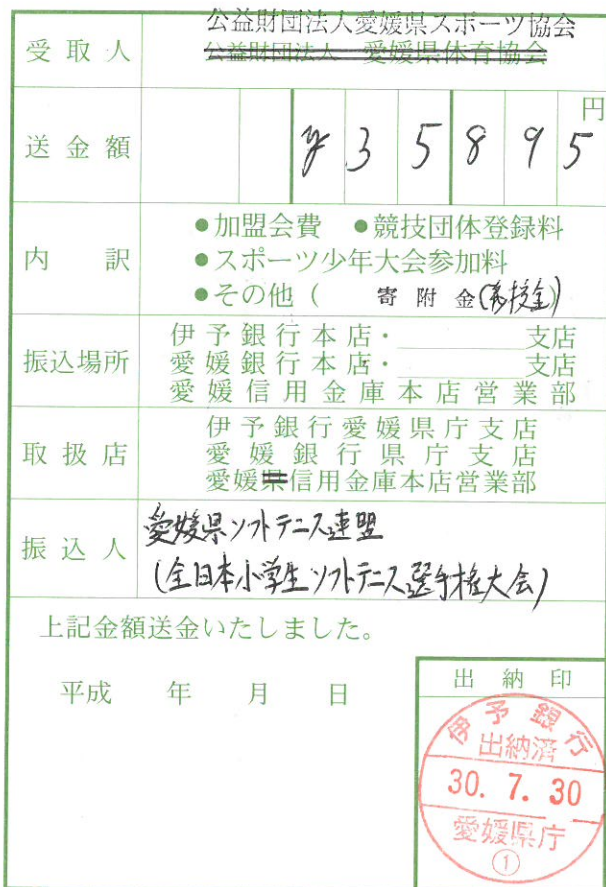 公益財団法人愛媛県スポーツ協会
受取人 公益財団法人 愛媛県体育協会
円
送金額 ¥35895
●加盟会費 ●競技団体登録料
内訳 ●スポーツ少年大会参加料
●その他( 寄附金(募技金)
伊予銀行本店・ 支店
振込場所 愛媛銀行本店・ 支店
愛媛信用金庫本店営業部
伊予銀行愛媛県庁支店
取扱店 愛媛銀行県庁支店
愛媛県信用金庫本店営業部
愛媛県ソフトテニス連盟
振込人
(全日本小学生ソフトテニス選手権大会)
上記金額送金いたしました。
平成 年 月 日
出納印
伊予銀行
出納済
30.7.30
愛媛県庁
①